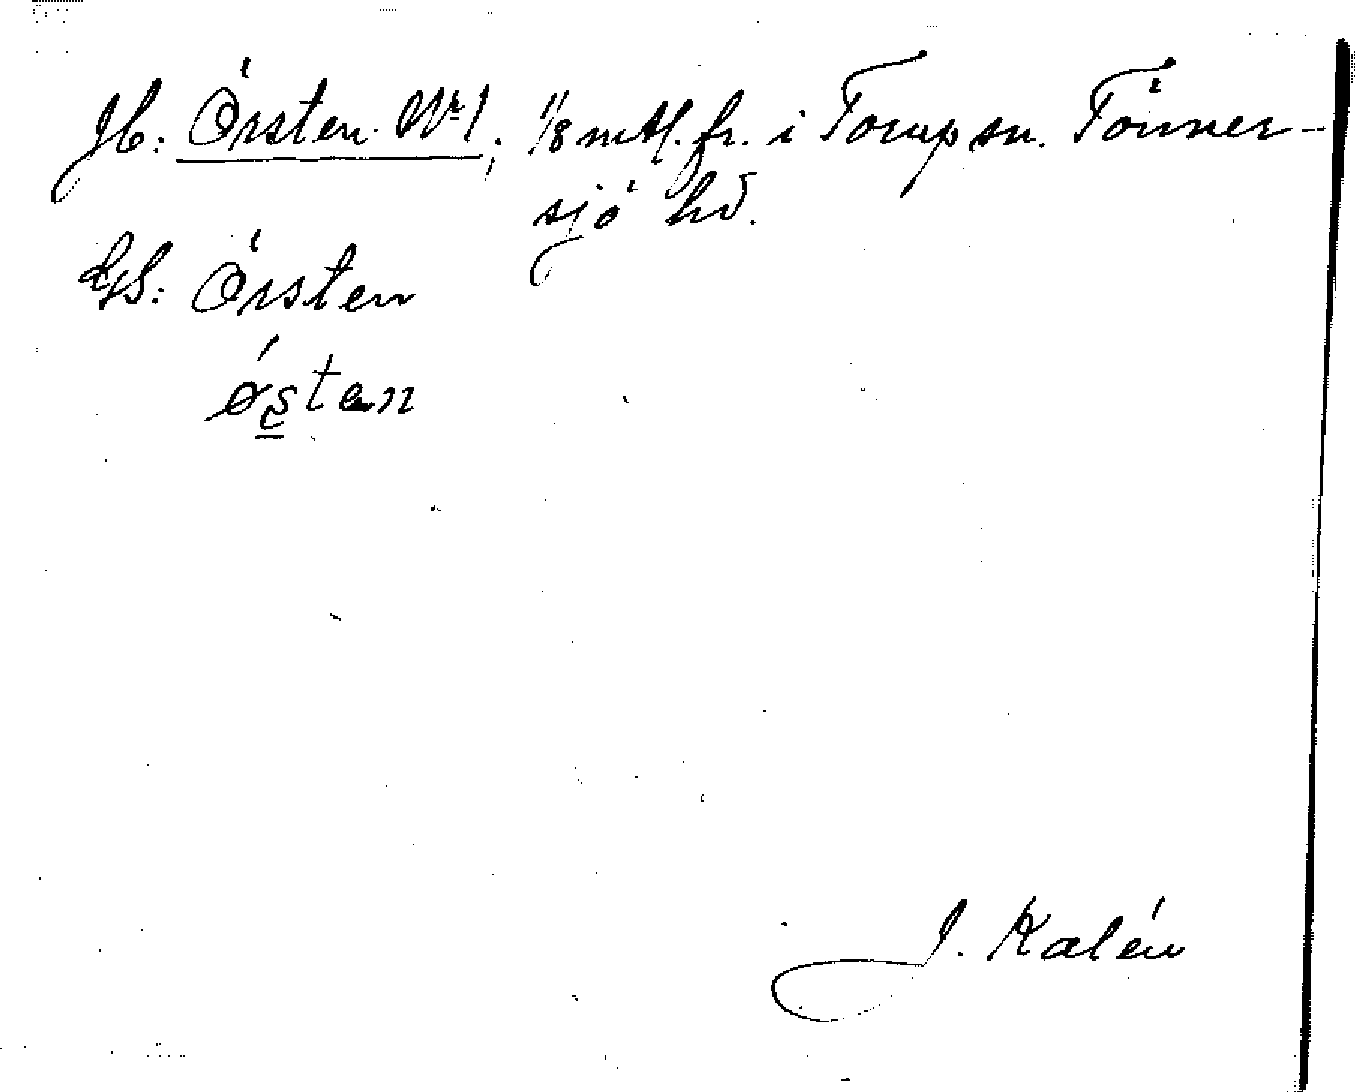 Jb: Örsten Nr 1; 1/8 mtl. fr. i Torup sn. Tönner-
sjö hd.
GS: Örsten
ǿstan
J. Kalén